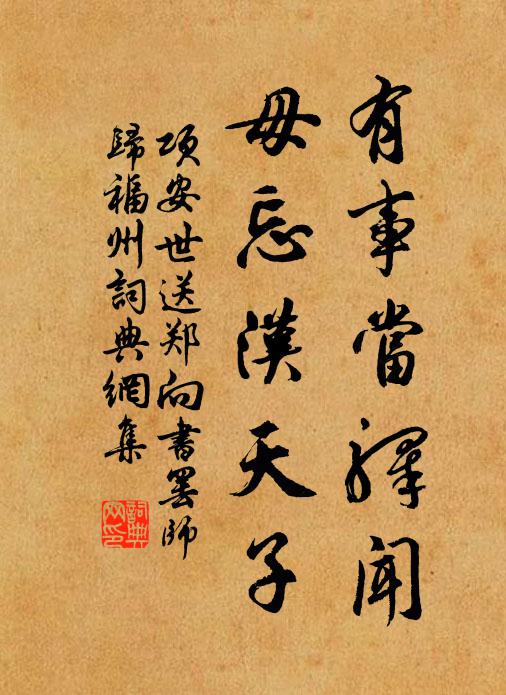 有事當驛聞
毋忘漢天子
项安世送郑向書罢師
歸福州詞典網集
詞典网印